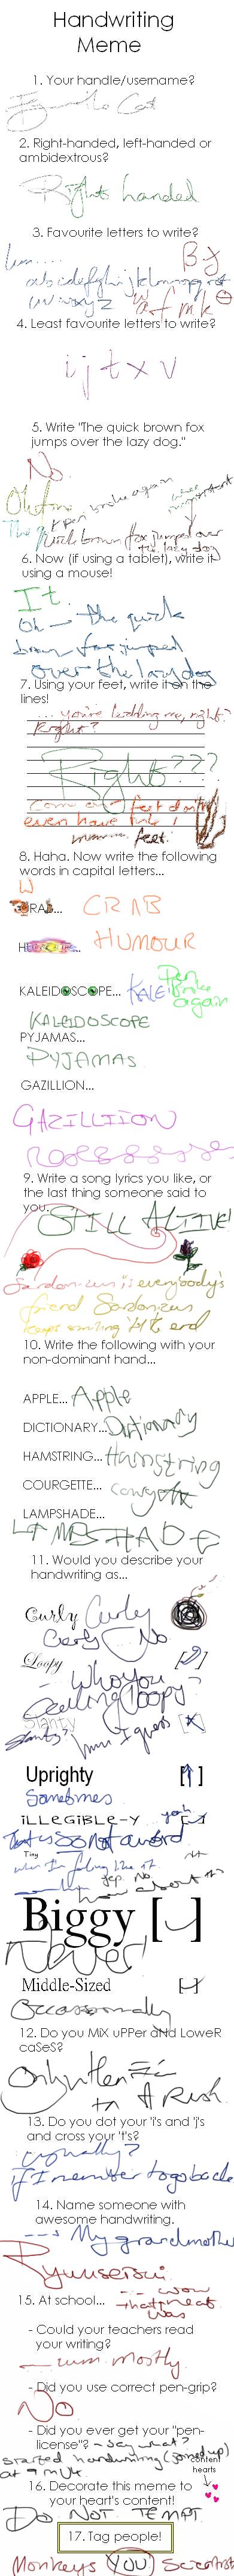 Handwriting
Meme
1. Your handle/username?
2. Right-handed, left-handed or
ambidextrous?
Right handed
3. Favourite letters to write?
um....
B J
abcdefghijklmnopqrst
uvwxyz
4. Least favourite letters to write?
i j t x v
5. Write "The quick brown fox
jumps over the lazy dog."
No
pen broke again
The quick brown fox jumped over
the lazy dog
6. Now (if using a tablet), write it
using a mouse!
It
Oh - the quick
brown fox jumped
over the lazy dog
7. Using your feet, write it on the
lines!
... you're kidding me, right?
Right?
Right???
Come on feet don't
even have
feet.
8. Haha. Now write the following
words in capital letters...
CRAB... CRAB
HUMOUR... HUMOUR
KALEIDOSCOPE... KALE
Pen
broke
again
KALEIDOSCOPE
PYJAMAS...
PYJAMAS
GAZILLION...
GAZILLIION
9. Write a song lyrics you like, or
the last thing someone said to
you.
STILL ALIVE!
Sardonicus is everybody's
friend Sardonicus
keeps smiling 'til the end
10. Write the following with your
non-dominant hand...
APPLE... Apple
DICTIONARY... Dictionary
HAMSTRING... Hamstring
COURGETTE... Courgette
LAMPSHADE...
LAMPSHADE
11. Would you describe your
handwriting as...
Curly Curly
Curly No
Loopy
Who you
calling loopy?
Slanty [X]
Slanty? umm I guess
Uprighty [ ]
Sometimes
iLLeGiBLe-y yeah
That is SO not a word
Tiny
when I'm feeling like it
yep. No.
how about
Biggy [ ]
Never
Middle-Sized [ ]
Occassionally
12. Do you MiX uPPer aNd LoweR
caSeS?
Only when I'm
in A Rush.
13. Do you dot your 'i's and 'j's
and cross your 't's?
usually?
if I remember to go back
14. Name someone with
awesome handwriting.
---> My grandmother
Ryuuseisui
15. At school...
-- wow
that neat
was
- Could your teachers read
your writing?
- umm mostly
- Did you use correct pen-grip?
No
- Did you ever get your "pen-
license"? - say what?
started handwriting (joined up)
at
16. Decorate this meme to
your heart's content!
content
hearts
Do NOT TEMPT
17. Tag people!
Monkeys YOU Scientist